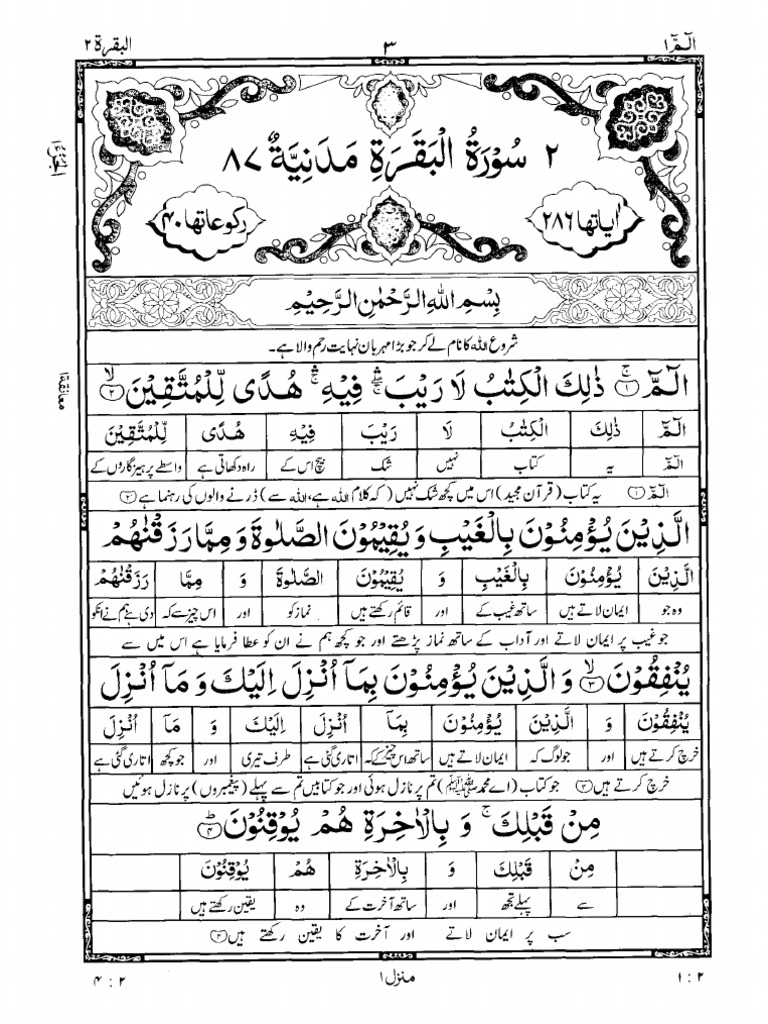 الٓمّٓ ١
٣
البقرة ٢
٢ سُوْرَةُ الْبَقَرَةِ مَدَنِيَّةٌ ٨٧
اٰیاتها ٢٨٦
ركوعاتها ٤٠
الجزء ١
بِسْمِ اللهِ الرَّحْمٰنِ الرَّحِيْمِ
شروع الله کا نام لے کر جو بڑا مہربان نہایت رحم والا ہے۔
معانقة ١
الٓمّٓ ۚ﴿١﴾ ذٰلِكَ الْكِتٰبُ لَا رَيْبَ ۛۖ فِيْهِ ۛۚ هُدًى لِّلْمُتَّقِيْنَ ۙ﴿٢﴾
الٓمّٓ ذٰلِكَ الْكِتٰبُ لَا رَيْبَ فِيْهِ هُدًى لِّلْمُتَّقِيْنَ
الٓمّٓ یہ کتاب نہیں شک بیچ اس کے راہ دکھاتی ہے واسطے پرہیزگاروں کے
الٓمّٓ ﴿١﴾ یہ کتاب (قرآن مجید) اس میں کچھ شک نہیں (کہ کلام الله ہے، الله سے) ڈرنے والوں کی رہنما ہے ﴿٢﴾
الَّذِيْنَ يُؤْمِنُوْنَ بِالْغَيْبِ وَ يُقِيْمُوْنَ الصَّلٰوةَ وَ مِمَّا رَزَقْنٰهُمْ
الَّذِيْنَ يُؤْمِنُوْنَ بِالْغَيْبِ وَ يُقِيْمُوْنَ الصَّلٰوةَ وَ مِمَّا رَزَقْنٰهُمْ
وہ جو ایمان لاتے ہیں ساتھ غیب کے اور قائم رکھتے ہیں نماز کو اور اس چیز سے کہ دی ہے ہم نے انکو
جو غیب پر ایمان لاتے اور آداب کے ساتھ نماز پڑھتے اور جو کچھ ہم نے ان کو عطا فرمایا ہے اس میں سے
يُنْفِقُوْنَ ۙ﴿٣﴾ وَ الَّذِيْنَ يُؤْمِنُوْنَ بِمَآ اُنْزِلَ اِلَيْكَ وَ مَآ اُنْزِلَ
يُنْفِقُوْنَ وَ الَّذِيْنَ يُؤْمِنُوْنَ بِمَآ اُنْزِلَ اِلَيْكَ وَ مَآ اُنْزِلَ
خرچ کرتے ہیں اور جو لوگ کہ ایمان لاتے ہیں ساتھ اس چیز کے کہ اتاری گئی ہے طرف تیری اور جو کچھ اتاری گئی ہے
خرچ کرتے ہیں ﴿٣﴾ جو کتاب (اے محمد ﷺ) تم پر نازل ہوئی اور جو کتابیں تم سے پہلے (پیغمبروں) پر نازل ہوئیں
مِنْ قَبْلِكَ ۚ وَ بِالْاٰخِرَةِ هُمْ يُوْقِنُوْنَ ؕ﴿٤﴾
مِنْ قَبْلِكَ وَ بِالْاٰخِرَةِ هُمْ يُوْقِنُوْنَ
سے پہلے تجھ اور ساتھ آخرت کے وہ یقین رکھتے ہیں
سب پر ایمان لاتے اور آخرت کا یقین رکھتے ہیں ﴿٤﴾
١ : ٢
منزل ١
٢ : ٤